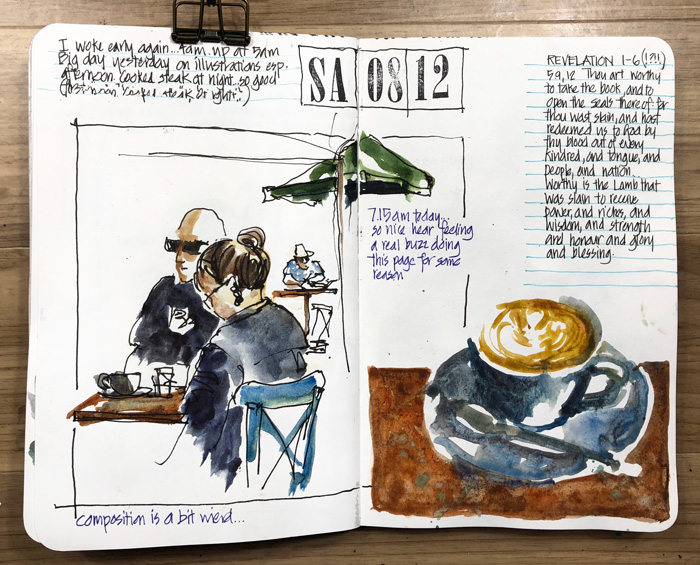 I woke early again...4am. up at 5am
Big day yesterday on illustrations esp.
afternoon. Cooked steak at night. so good
SA 08 12
7.15am today...
so nice hear feeling
a real buzz doing
this page for some
reason
composition is a bit weird...
REVELATION 1-6 (!?!!)
5.9,12 Thou art worthy
to take the book, and to
open the seals thereof: for
thou wast slain, and hast
redeemed us to God by
thy blood out of every
kindred, and tongue, and
people, and nation.
Worthy is the Lamb that
was slain to receive
power, and riches, and
wisdom, and strength
and honour and glory
and blessing.